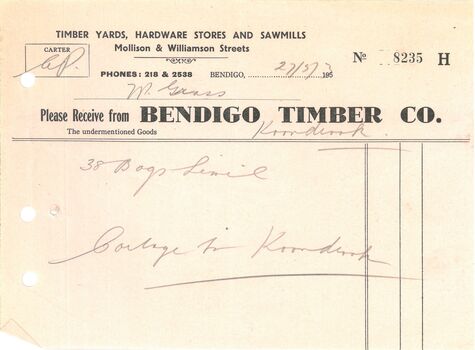 TIMBER YARDS, HARDWARE STORES AND SAWMILLS
Mollison & Williamson Streets
CARTER
Nº 8235 H
PHONES: 218 & 2538 BENDIGO, 27/5/ 195
W.
Please Receive from BENDIGO TIMBER CO.
The undermentioned Goods Koondrook
38 Bags
Cartage to Koondrook